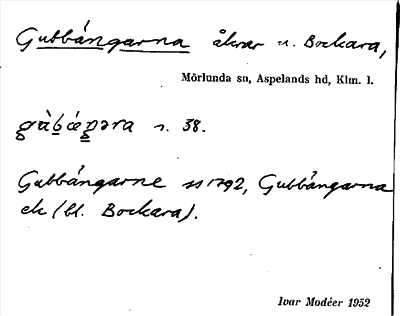 Gubbängarna åkrar u. Bockara,
Mörlunda sn, Aspelands hd, Klm. l.
r. 38.
Gubbängarne 1792, Gubbängarna
ek (bl. Bockara).
Ivar Modéer 1952